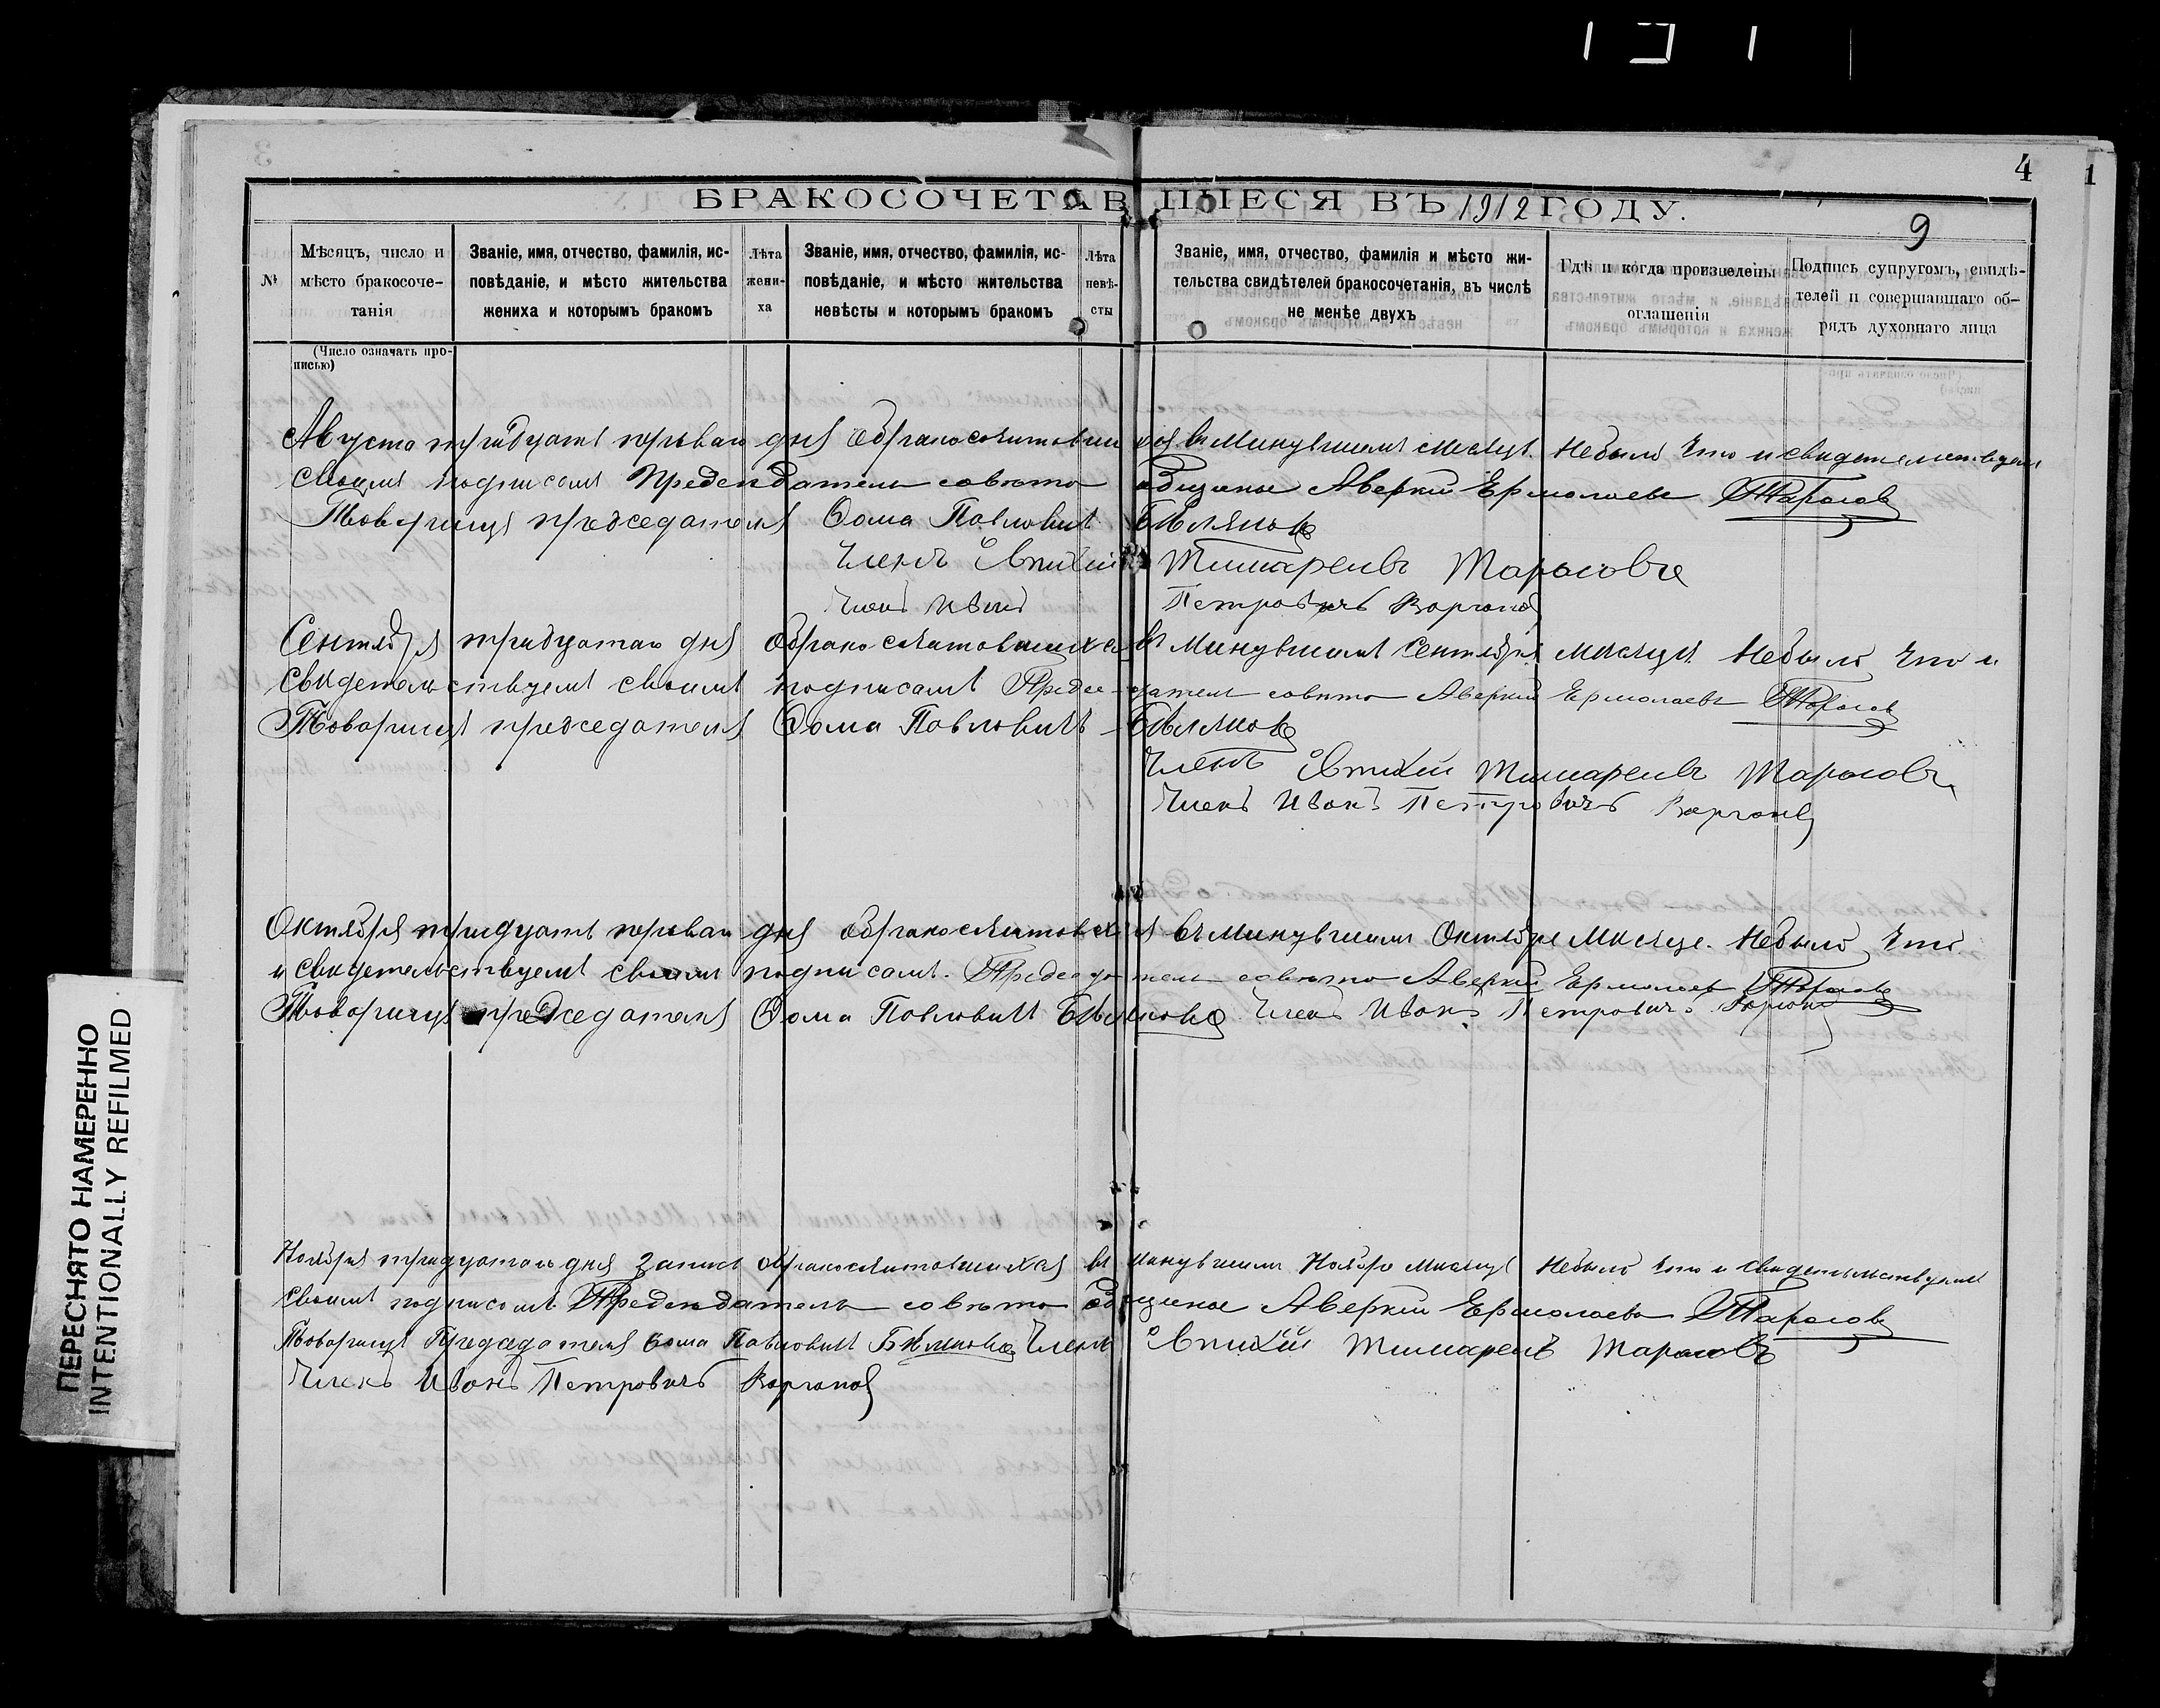 4
1
БРАКОСОЧЕТАВШІЕСЯ ВЪ 1912 ГОДУ.
9
№
Мѣсяцъ, число и
мѣсто бракосоче-
танія
Званіе, имя, отчество, фамилія, ис-
повѣданіе, и мѣсто жительства
жениха и которымъ бракомъ
Лѣта
жени-
ха
Званіе, имя, отчество, фамилія, ис-
повѣданіе, и мѣсто жительства
невѣсты и которымъ бракомъ
Лѣта
невѣ-
сты
Званіе, имя, отчество, фамилія и мѣсто жи-
тельства свидѣтелей бракосочетанія, въ числѣ
не менѣе двухъ
Гдѣ и когда произведены
оглашенія
Подпись супруговъ, свидѣ-
телей и совершавшаго об-
рядъ духовнаго лица
(Число означать про-
писью)
Августа тридцать перваго дня обракосочитовшихся въ Минувшемъ месяце. Небыло Что и свидетелствуем
своимъ подписомъ Председатель совета общины Аверкий Ермолаевъ Тарасовъ
Товарищъ председателя Фома Павловичъ Бѣляковъ
Членъ Евтихий Тимареивъ Тарасовъ
Членъ Иванъ Петровичъ
Сентября тридцатаго дня обракосочитовшихся въ Минувшемъ Сентябре месяце Небыло Что и
Свидетельствуемъ своимъ подписомъ Председатель совета Аверкий Ермолаевъ Тарасовъ
Товарищъ председателя Фома Павловичъ Бѣляковъ
Членъ Евтихий Тимареивъ Тарасовъ
Членъ Иванъ Петровичъ
Октября тридцать перваго дня обракосочитовшихся въ минувшемъ Октябре Месяце. Небыло Что.
и свидетельствуемъ своимъ подписомъ. Председатель совета Аверкий Ермолаевъ Тарасовъ
Товарищъ председателя Фома Павловичъ Бѣляковъ Членъ Иванъ Петровичъ
Ноября тридцатаго дня Запись обракосочитовшихся въ минувшемъ Ноябре Месяце Небыло Что и Свидетельствуемъ
своимъ подписомъ Председатель совета общины Аверкий Ермолаевъ Тарасовъ
Товарищъ Председателя Фома Павловичъ Бѣляковъ Членъ Евтихий Тимареивъ Тарасовъ
Членъ Иванъ Петровичъ
ПЕРЕСНЯТО НАМЕРЕННО
INTENTIONALLY REFILMED